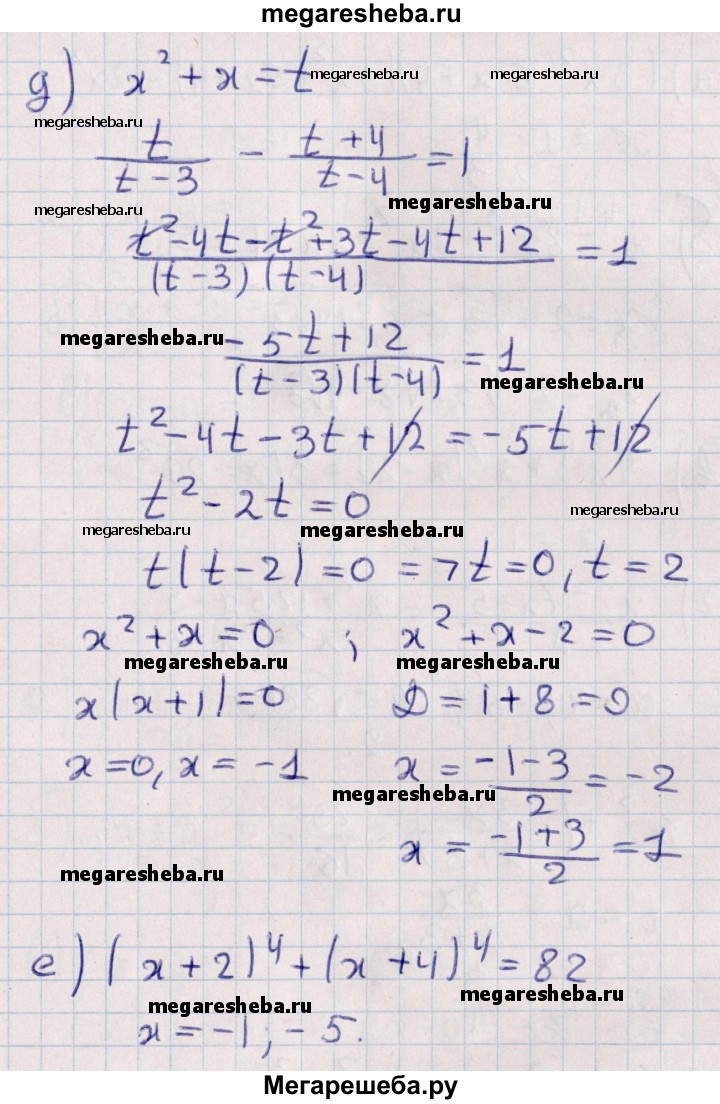 megaresheba.ru
д) x² + x = t megaresheba.ru megaresheba.ru
megaresheba.ru
t/(t-3) - (t+4)/(t-4) = 1
megaresheba.ru
megaresheba.ru
(t²-4t-t²+3t-4t+12)/((t-3)(t-4)) = 1
megaresheba.ru
(-5t+12)/((t-3)(t-4)) = 1
megaresheba.ru
t²-4t-3t+12 = -5t+12
t²-2t=0
megaresheba.ru
megaresheba.ru megaresheba.ru
t(t-2)=0 => t=0, t=2
x²+x=0 ; x²+x-2=0
megaresheba.ru megaresheba.ru
x(x+1)=0 D=1+8=9
x=0, x=-1 x = (-1-3)/2 = -2
megaresheba.ru
x = (-1+3)/2 = 1
megaresheba.ru
е) (x+2)⁴+(x+4)⁴=82
megaresheba.ru
megaresheba.ru
x=-1; -5.
Мегарешеба.ру